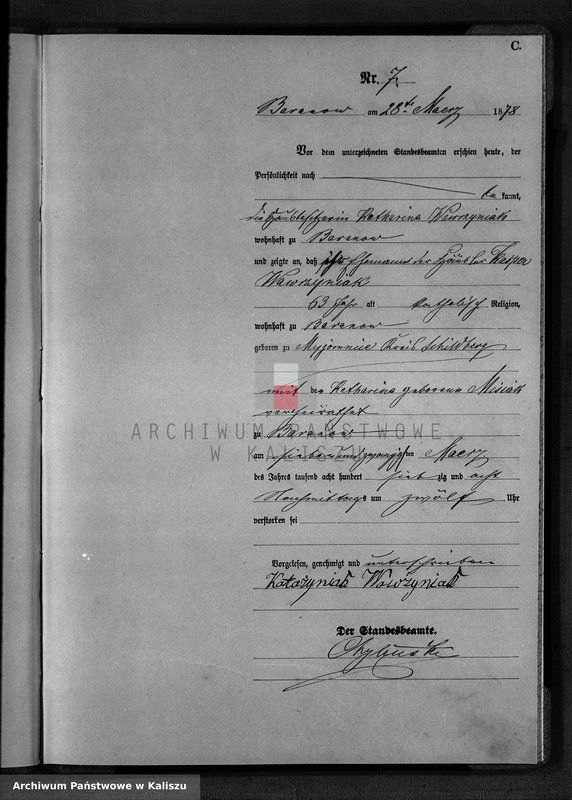 C.
Nr. 7.
Baranow am 28ten Maerz 1878
Vor dem unterzeichneten Standesbeamten erschien heute, der
Persönlichkeit nach
bekannt,
die Häuslerin Katharina Wawrzyniak
wohnhaft zu Baranow
und zeigte an, daß ihr Ehemann der Häusler Kasper
Wawrzyniak
63 Jahr alt katholisch Religion,
wohnhaft zu Baranow
geboren zu Myjomnice Kreis Schildberg
mit der Katharina geborenen Misiak
verheirathet
zu Baranow
am sieben und zwanzigsten Maerz
des Jahres tausend acht hundert sieb zig und acht
Nachmittags um zwölf Uhr
verstorben sei
Vorgelesen, genehmigt und unterschrieben
Katarzyniak Wawrzyniak
Der Standesbeamte.
ARCHIWUM PAŃSTWOWE
W KALISZU
Archiwum Państwowe w Kaliszu